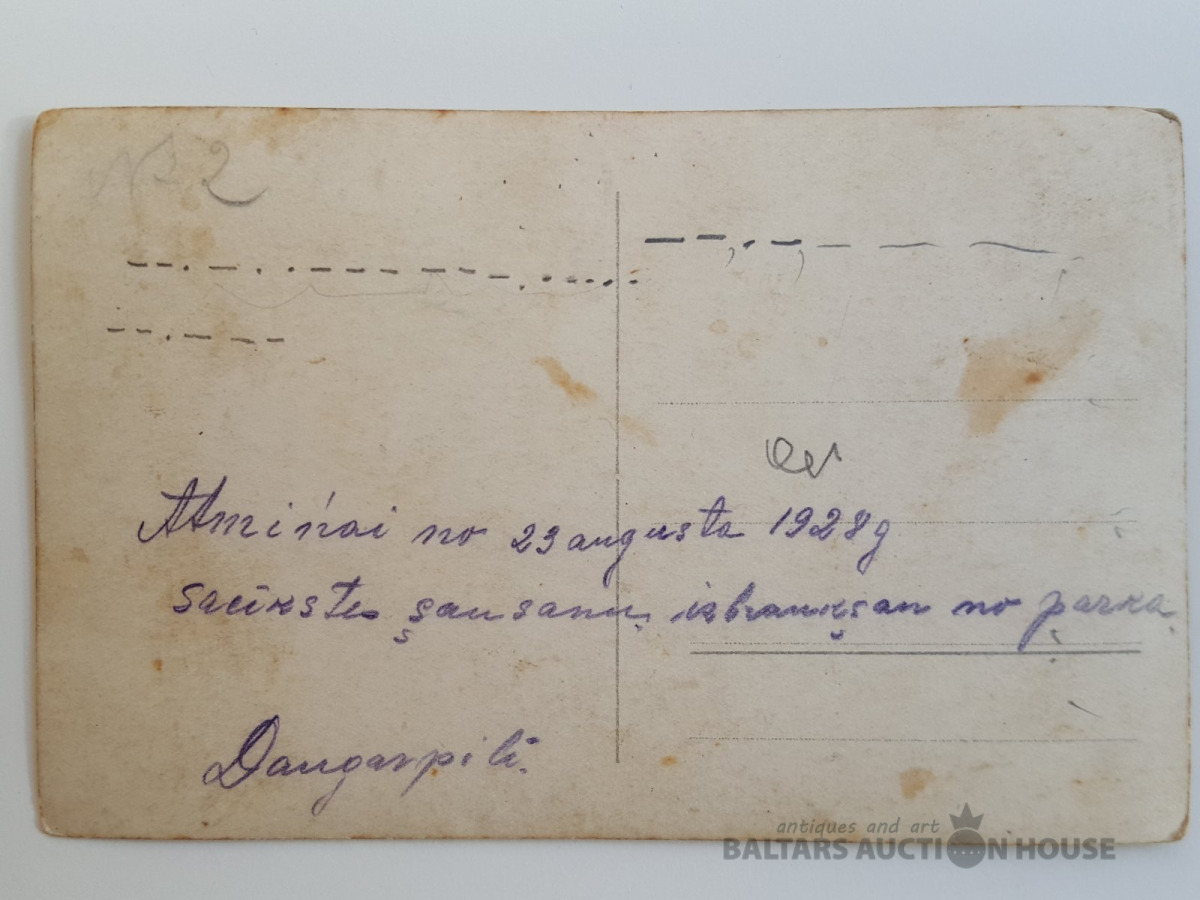 № 2
Atmińai no 23 augusta 1928g
sacīkstes şausanu, izbraukşan no parka
Daugavpilī.
antiques and art
BALTARS AUCTION HOUSE